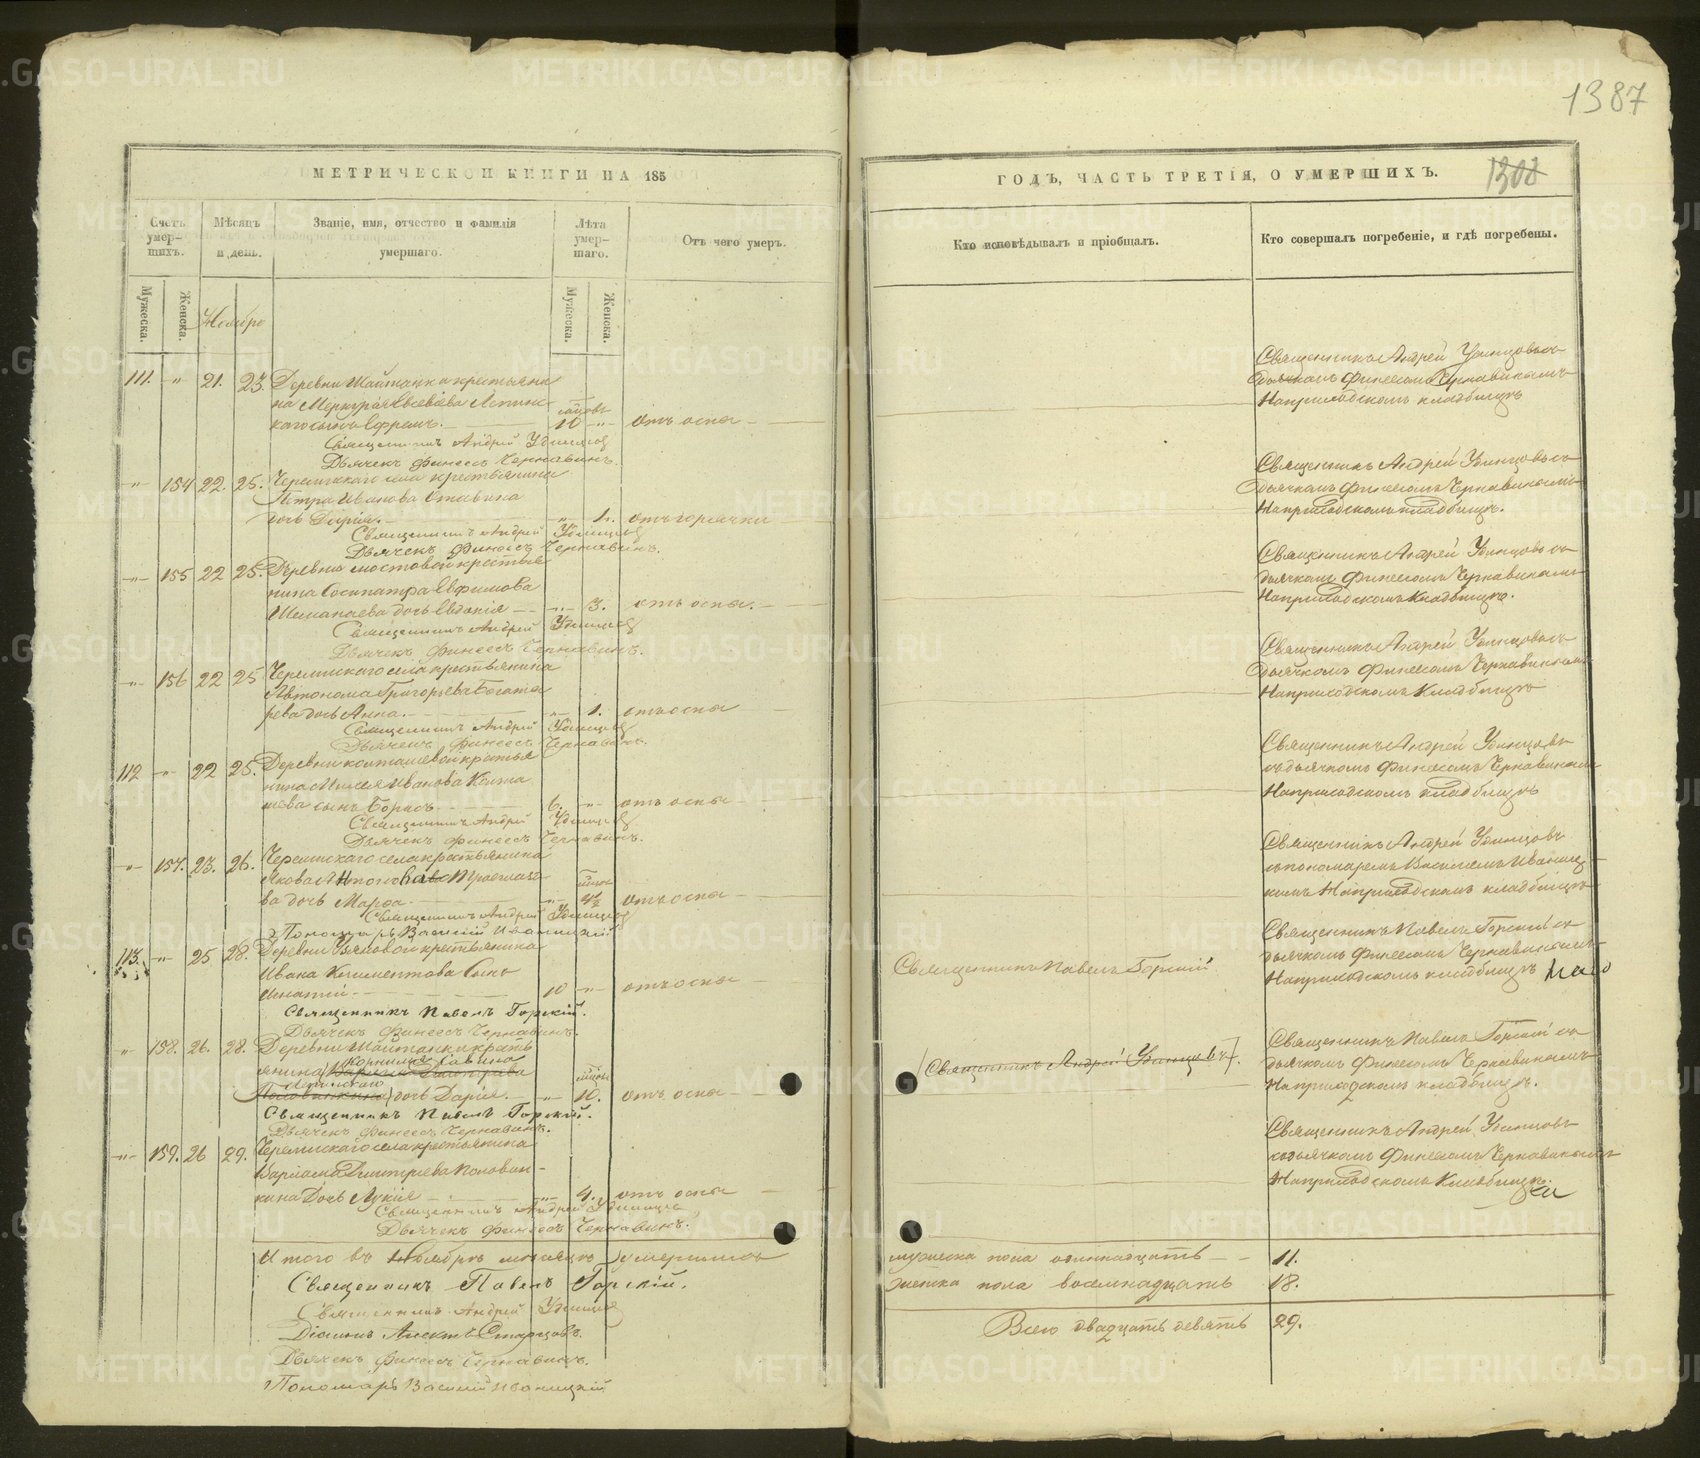 1387
МЕТРИЧЕСКОЙ КНИГИ НА 185
ГОДЪ, ЧАСТЬ ТРЕТІЯ, О УМЕРШИХЪ.
1308
Счетъ умер-шихъ.
Мѣсяцъ и день.
Званіе, имя, отчество и фамилія умершаго.
Лѣта умер-шаго.
Отъ чего умеръ.
Кто исповѣдывалъ и пріобщалъ.
Кто совершалъ погребеніе, и гдѣ погребены.
Мужеска.
Женска.
Ноябрь
Мужеска.
Женска.
111. -"- 21. 23. Деревни Шайтанки крестьяни
на Меркурія Евсевіева Лепинс-
каго сынъ Ефремъ. 10 -"- отъ оспы
Священникъ Андрей Удинцовъ
Дьячекъ Финеесъ Чернавинъ.
Священникъ Андрей Удинцовъ съ
дьячкомъ Финеесомъ Чернавинымъ
На приходскомъ кладбищѣ
-"- 154 22. 25. Черемисскаго села крестьянина
Петра Иванова
дочь Дарія. -"- 1. отъ горячки
Священникъ Андрей Удинцовъ
Дьячекъ Финеесъ Чернавинъ.
Священникъ Андрей Удинцовъ съ
дьячкомъ Финеесомъ Чернавинымъ
На приходскомъ кладбищѣ.
-"- 155 22 25. Деревни Мостовой крестья
нина Сосипатра Евфимова
Шаманаева дочь Евдокія -"- 3. отъ оспы.
Священникъ Андрей Удинцовъ
Дьячекъ Финеесъ Чернавинъ.
Священникъ Андрей Удинцовъ съ
дьячкомъ Финеесомъ Чернавинымъ
На приходскомъ кладбищѣ.
-"- 156 22 25 Черемисскаго села крестьянина
Автонома Григорьева Богаты
рева дочь Анна. -"- 1. отъ оспы
Священникъ Андрей Удинцовъ
Дьячекъ Финеесъ Чернавинъ.
Священникъ Андрей Удинцовъ съ
дьячкомъ Финеесомъ Чернавинымъ
На приходскомъ кладбищѣ
112 -"- 22 25. Деревни Колташевой крестья
нина Иванова Колта
шева сынъ Борисъ 6. -"- отъ оспы
Священникъ Андрей Удинцовъ
Дьячекъ Финеесъ Чернавинъ.
Священникъ Андрей Удинцовъ
съ дьячкомъ Финеесомъ Чернавинымъ
На приходскомъ кладбищѣ
-"- 157. 23. 26. Черемисскаго села крестьянина
Якова
ва дочь Марѳа -"- 4½ отъ оспы
Священникъ Андрей Удинцовъ
Пономарь Василій Иваницкій
Священникъ Андрей Удинцовъ
съ пономаремъ Василіемъ Иваниц
кимъ На приходскомъ кладбищѣ
113. -"- 25 28. Деревни крестьянина
Ивана Климентова сынъ
Игнатій 10 -"- отъ оспы
Священникъ Павелъ Горскій.
Дьячекъ Финеесъ Чернавинъ.
Священникъ Павелъ Горскій
Священникъ Павелъ Горскій съ
дьячкомъ Финеесомъ Чернавинымъ
На приходскомъ кладбищѣ
-"- 158. 26. 28. Деревни Шайтанки кресть
янина Корнилія Савина
Лепинскаго
Половинкина дочь Дарія. -"- 10. отъ оспы
Священникъ Павелъ Горскій.
Дьячекъ Финеесъ Чернавинъ.
(Священникъ Андрей Удинцовъ).
Священникъ Павелъ Горскій съ
дьячкомъ Финеесомъ Чернавинымъ
На приходскомъ кладбищѣ.
-"- 159. 26 29. Черемисскаго села крестьянина
Варлама Димитріева Половин-
кина дочь Лукія -"- 4. отъ оспы
Священникъ Андрей Удинцовъ
Дьячекъ Финеесъ Чернавинъ.
Священникъ Андрей Удинцовъ
съ дьячкомъ Финеесомъ Чернавинымъ
На приходскомъ кладбищѣ.
Итого въ Ноябрѣ мѣсяцѣ умершихъ
мужеска пола одиннадцать 11.
женска пола восемнадцать 18.
Всего двадцать девять 29.
Священникъ Павелъ Горскій.
Священникъ Андрей Удинцовъ
Діаконъ Старцовъ.
Дьячекъ Финеесъ Чернавинъ.
Пономарь Василій Иваницкій
METRIKI.GASO-URAL.RU